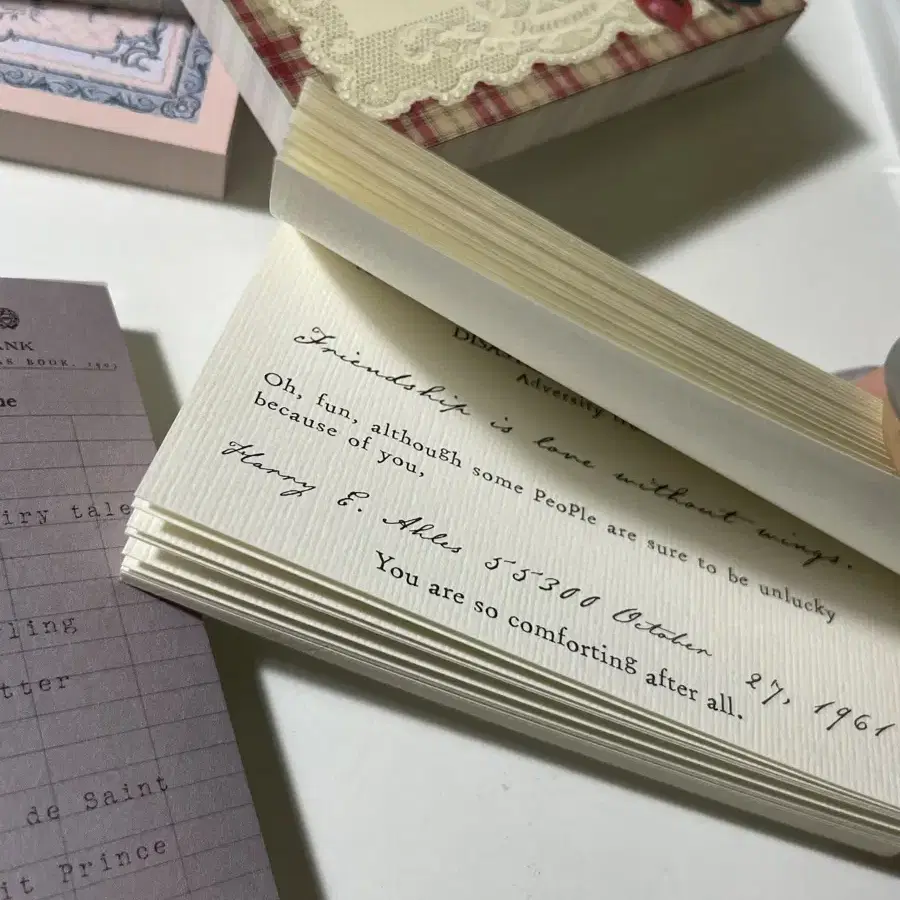 Adversity
Friendship is love without wings.
Oh, fun, although some PeoPle are sure to be unlucky
because of you,
Harry E. Ahles 55300 October 27, 1961
You are so comforting after all.
ANK
BOOK,
iry tale
ling
tter
de Saint
it Prince